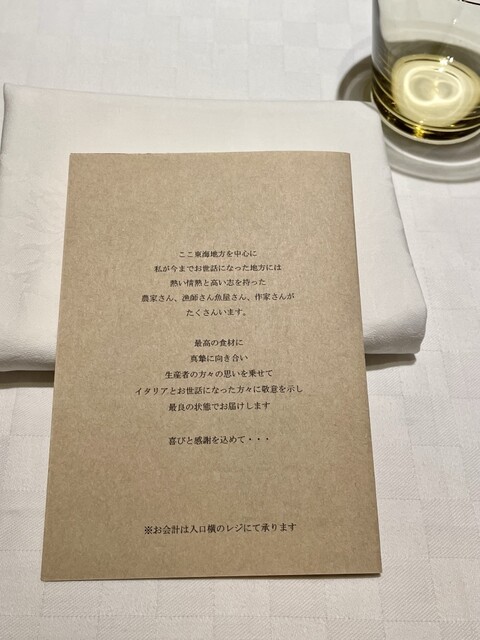 ここ東海地方を中心に
私が今までお世話になった地方には
熱い情熱と高い志を持った
農家さん、漁師さん魚屋さん、作家さんが
たくさんいます。
最高の食材に
真摯に向き合い
生産者の方々の思いを乗せて
イタリアとお世話になった方々に敬意を示し
最良の状態でお届けします
喜びと感謝を込めて・・・
※お会計は入口横のレジにて承ります